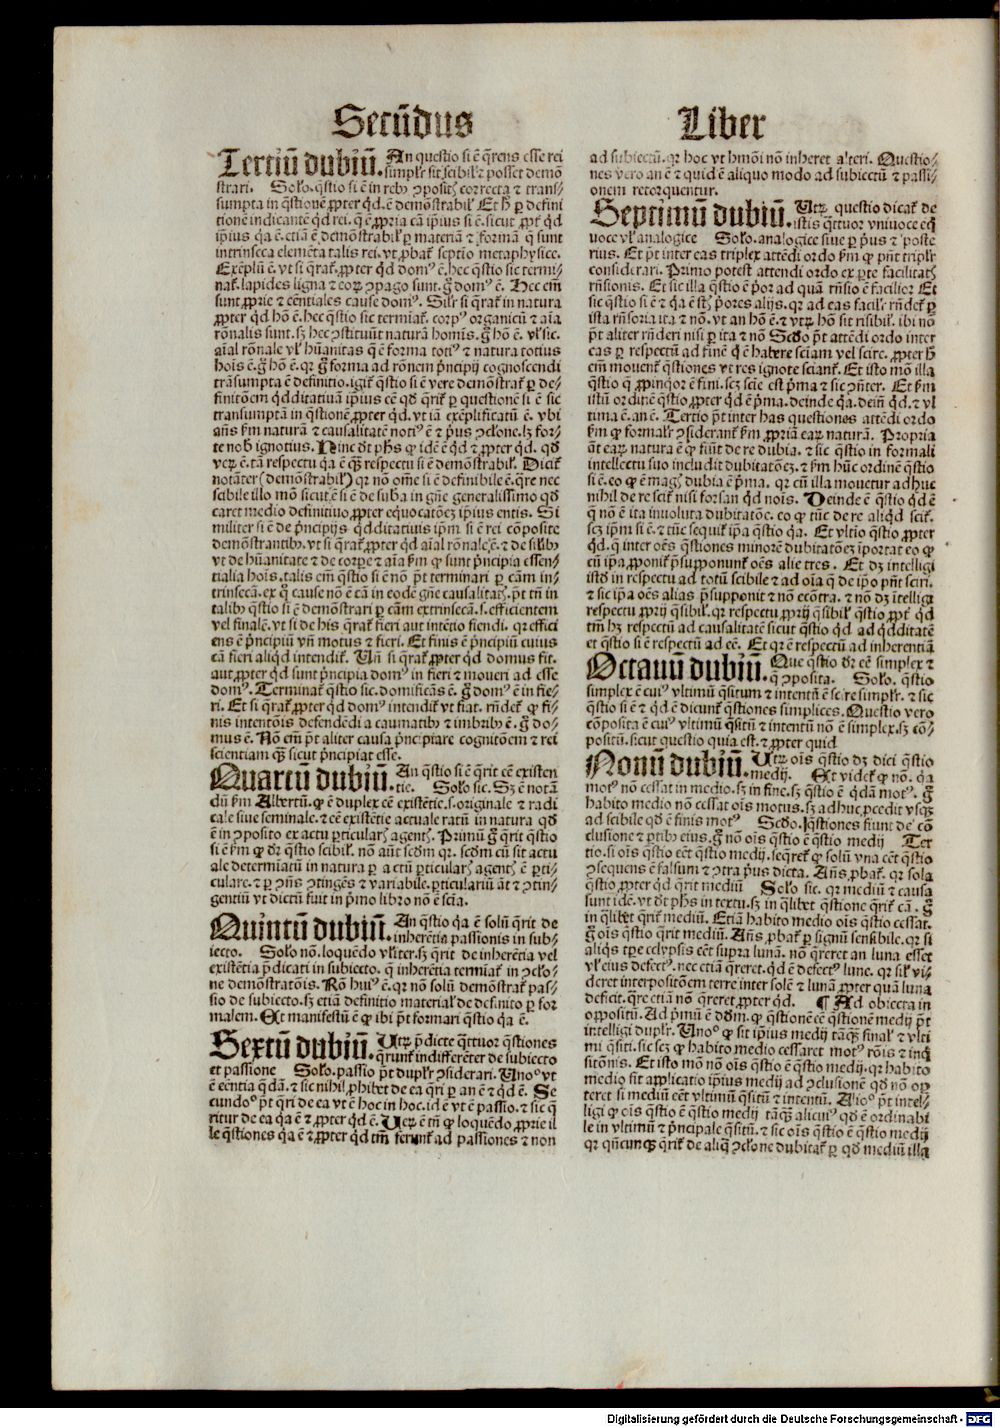 Secūdus Liber
Tertiū dubiū. An questio si ē q̄rens esse rei
simplr̄ sit scibilꝭ posset demō
strari. Solo. q̄stio si ē in rebꝰ ꝯpositꝭ correcta ⁊ trans⸗
sumpta in q̄stionē ꝓpter qd. ē demōstrabil̓ Et
tionē indicantē qd rei. q̄ ē ꝓpria cā ip̄ius si ē. sicut
ip̄ius q̄a ē. etiā ē demōstrabil̓ ꝑ materiā ⁊ formā q̄ sunt
intrinseca elemēta talis rei. vt ꝓbat̉ septīo metaphysice.
Exēplū ē. vt si q̄rat̉. ꝓpter qd domꝰ ē. hec q̄stio sic termi⸗
nat̉. lapides ligna ⁊ ꝯpago sunt. g̊ domꝰ ē. Hec em̄
sunt ꝓprie ⁊ eēntiales cause domꝰ. Silr̄ si q̄rat̉ in natura
ꝓpter qd hō ē. hec q̄stio sic termīat̉. corpꝰ organicū ⁊ aīa
rōnalis sunt. sꝫ hec ꝯstituūt naturā homīs. g̊ hō ē. vl̓ sic.
aīal rōnale vl̓ hūanitas q̄ ē forma totiꝰ ⁊ natura totius
hoīs ē. g̊ hō ē. qr̄ g̊ forma ad rōnem p̄ncipij cognoscendi
trāsumpta ē definitio. igit̉ q̄stio si ē vere demōstrat̉ ꝑ de⸗
finitōem qdditatiuā ip̄ius eē qd q̄rit̉ ꝑ questionē si ē sic
transumptā in q̄stionē ꝓpter qd. vt iā exēplificatū ē. vbi
añs km̄ naturā ⁊ causalitatē notiꝰ ē ⁊ p̄ꝰ ꝯclone. lꝫ for⸗
te nob̓ ignotius. Hinc dt̄ phs̄ ꝙ idē ē qd ⁊ ꝓpter qd. qd
verꝫ ē. tā respectu q̄a ē qꝫ respectu si ē demōstrabil̓. Dicit̉
notāter (demōstrabil̓) qr̄ nō om̄e si ē definibile ē. q̄re nec
scibile illo mō sicut ē si ē de suba in gn̄e generalissimo qd
caret medio definitiuo ꝓpter equocatōeꝫ ip̄ius entis. Si
militer si ē de p̄ncipijs qdditatiuis ip̄m si ē rei cōposite
demōstrantibꝰ. vt si q̄rat̉ ꝓpter qd aīal rōnale ē. ⁊ de silibꝰ
vt de hūanitate ⁊ de corpe ⁊ aīa km̄ ꝙ sunt p̄ncipia essen⸗
tialia hoīs. talis em̄ q̄stio si ē nō pt̄ terminari ꝑ cām in⸗
trinsecā. ex q̊ cause nō ē cā in eodē gn̄e causalitatꝭ. pt̄ tn̄ in
talibꝰ q̄stio si ē demōstrari ꝑ cām extrinsecā. s. efficientem
vel finalē. vt si de his q̄rat̉ fieri aut intētio fiendi. qr̄ effici
ens ē p̄ncipiū vn̄ motus ⁊ fieri. Et finis ē p̄ncipiū cuius
cā fieri aliqd intendit̉. Vn̄ si q̄rat̉ ꝓpter qd domus fit.
aut ꝓpter qd sunt p̄ncipia domꝰ in fieri ⁊ moueri ad esse
domꝰ. Terminat̉ q̄stio sic. domificās ē. g̊ domꝰ ē in fie⸗
ri. Et si q̄rat̉ ꝓpter qd domꝰ intendit̉ vt fiat. rn̄det̉ ꝙ fi⸗
nis intentōis defendēdi a caumatibꝰ ⁊ imbribꝰ ē. g̊ do⸗
mus ē. Nō em̄ pt̄ aliter causa p̄ncipiare cognitōem ⁊ rei
scientiam qꝫ sicut p̄ncipiat esse.
Quartū dubiū. An q̄stio si ē q̄rit eē existen
tie. Solo sic. Sꝫ ē notā
dū km̄ Albertū. ꝙ ē duplex eē existētie. s. originale ⁊ radi
cale siue seminale. ⁊ eē existētie actuale ratū in natura qd
ē in ꝯposito ex actu ꝑticularꝭ agentꝭ. Primū g̊ q̄rit q̄stio
si ē km̄ ꝙ dr̄ q̄stio scibil̓. nō aūt scdm̄ qr̄. scdm̄ eū sit actu
ale determīatū in natura ꝑ a ctū ꝑticularꝭ agentꝭ ē ꝑti⸗
culare. ⁊ ꝑ ꝯñs ꝯtingēs ⁊ variabile. ꝑticulariū āt ⁊ ꝯtin⸗
gentiū vt dictū fuit in p̄mo libro nō ē scīa.
Quintū dubiū. An q̄stio q̄a ē solū q̄rit de
inherētia passionis in sub⸗
iecto. Solo nō. loquēdo vl̓iter. sꝫ q̄rit de inherētia vel
existētia p̄dicati in subiecto. q̄ inherētia termīat̉ in ꝯclo⸗
ne demōstratōis. Rō huiꝰ ē. qr̄ nō solū demōstrat̉ pas⸗
sio de subiecto. sꝫ etiā definitio material̓ de definito ꝑ for
malem. Et manifestū ē ꝙ ibi pt̄ formari q̄stio q̄a ē.
Sextū dubiū. Vtꝝ p̄dicte q̄ttuor q̄stiones
q̄runt̉ indifferēter de subiecto
et passione Solo. passio pt̄ duplr̄ ꝯsiderari. Vnoº vt
ē eēntia q̄dā. ⁊ sic nihil ꝓhibet de ea q̄ri ꝑ an ē ⁊ qd ē. Se
cundoº pt̄ q̄ri de ea vt ē hoc in hoc. id ē vt ē passio. ⁊ sic q̄
ritur de ea q̄a ē ⁊ ꝓpter qd ē. Veꝝ ē tn̄ ꝙ loquēdo ꝓprie il
le q̄stiones q̄a ē ⁊ ꝓpter qd tm̄ ferunt̉ ad passiones ⁊ non
ad subiectū. qr̄ hoc vt hmōi nō inheret alteri. Questio⸗
nes vero an ē ⁊ quid ē aliquo modo ad subiectū ⁊ passi⸗
onem retorquentur.
Septimū dubiū. Vtꝝ questio dicat̉ de
istis q̄ttuor vniuoce eq̄
uoce vl̓ analogice Solo. analogice siue ꝑ p̄ꝰ ⁊ poste
rius. Et pt̄ inter eas triplex attēdi ordo km̄ ꝙ pn̄t triplr̄
considerari. Primo potest attendi ordo ex ꝑte facilitatꝭ
rn̄sionis. Et sic illa q̄stio ē p̄or ad quā rn̄sio ē facilior Et
sic q̄stio si ē ⁊ q̄a ē st̄ p̄ores alijs. qr̄ ad eas facilr̄ rn̄det̉ ꝑ
ista rn̄soria ita ⁊ nō. vt an hō ē. ⁊ vtꝝ hō sit risibil̓. ibi nō
pt̄ aliter rn̄deri nisi ꝑ ita ⁊ nō Scdo pt̄ attēdi ordo inter
eas ꝑ respectū ad finē q̄ ē habere sciam vel scire. ꝓpter
em̄ mouent̉ q̄stiones vt res ignote sciant̉. Et isto mō illa
q̄stio q̄ ꝓpinqor ē fini. scꝫ scīe est p̄ma ⁊ sic ꝯn̄ter. Et km̄
istū ordinē q̄stio ꝓpter qd ē p̄ma. deinde q̄a. dein̄ qd. ⁊ vl
tima ē. an ē. Tertio pn̄t inter has questiones attēdi ordo
km̄ ꝙ formalr̄ ꝯsiderant̉ km̄ ꝓpriā earꝫ naturā. Propria
āt earꝫ natura ē ꝙ fiūt de re dubia. ⁊ sic q̄stio in formali
intellectu suo includit dubitatōeꝫ. ⁊ km̄ hūc ordinē q̄stio
si ē. eo ꝙ ē magꝭ dubia ē p̄ma. qr̄ cū illa mouetur adhuc
nihil de re scit̉ nisi forsan qd noīs. Deinde ē q̄stio qd ē
q̄ nō ē ita inuoluta dubitatōe. eo ꝙ tūc de re aliqd scit̉.
scꝫ ip̄m si ē. ⁊ tūc sequit̉ ip̄a q̄stio q̄a. Et vltīo q̄stio ꝓpter
qd. q̄ inter oēs q̄stiones minorē dubitatōeꝫ iportat eo ꝙ
cū ip̄a ꝓponit̉ p̄supponunt̉ oēs alie tres. Et dꝫ intelligi
istd in respectu ad totū scibile ⁊ ad oīa q̄ de ip̄o pn̄t sciri.
⁊ sic ip̄a oēs alias p̄supponit ⁊ nō ecōtra. ⁊ nō dꝫ itelligi
respectu ꝓprij q̄sibil̓. qr̄ respectu ꝓprij q̄sibil̓ q̄stio ꝓpt̓ qd
tm̄ hꝫ respectū ad causalitatē sicut q̄stio qd ad qdditatē
et q̄stio si ē respectū ad eē. Et qr̄ ē respectū ad inherentiā
Octauū dubiū. Que q̄stio dr̄ eē simplex ⁊
q̄ ꝯposita. Solo. q̄stio
simplex ē cuiꝰ vltimū q̄situm ⁊ intentū ē scire simplr̄. ⁊ sic
q̄stio si ē ⁊ qd ē dicunt̉ q̄stiones simplices. Questio vero
cōposita ē cuiꝰ vltimū q̄sitū ⁊ intentū nō ē simplex. sꝫ cō⸗
positū. sicut questio quia est. ⁊ ꝓpter quid
Nonū dubiū. Vtꝝ oīs q̄stio dꝫ dici q̄stio
medij. Et videt̉ ꝙ nō. q̄a
motꝰ nō cessat in medio. sꝫ in fine. sꝫ q̄stio ē q̄dā motꝰ. g̊
habito medio nō cessat oīs motus. sꝫ adhuc ꝓcedit vsqꝫ
ad scibile qd ē finis motꝰ Scdo. q̄stiones fiunt de cō
clusione ⁊ ꝑtibꝰ eius. g̊ nō oīs q̄stio ē q̄stio medij Ter
tio. si oīs q̄stio eēt q̄stio medij. seq̄ret̉ ꝙ solū vna eēt q̄stio
ꝯsequens ē falsum ⁊ ꝯtra p̄ꝰ dicta. Añs ꝓbat̉. qr̄ sola
q̄stio ꝓpter qd q̄rit mediū Solo sic. qr̄ mediū ⁊ causa
sunt idē. vt dt̄ phs̄ in textu. sꝫ in q̄libet q̄stione q̄rit̉ cā. g̊
in q̄libet q̄rit̉ mediū. Etiā habito medio oīs q̄stio cessat.
g̊ oīs q̄stio q̄rit mediū. Añs ꝓbat̉ ꝑ signū sensibile. qr̄ si
aliqs tp̄e eclypsis eēt supra lunā. nō q̄reret an luna esset
vl̓ eius defectꝰ. nec etiā q̄reret. qd ē defectꝰ lune. qr̄ sil̓ vi⸗
deret interpositōem terre inter solē ⁊ lunā ꝓpter quā luna
deficit. q̄re etiā nō q̄reret ꝓpter qd. ¶ Ad obiecta in
oppositū. Ad p̄mū ē dd̄m. ꝙ q̄stionē eē q̄stionē medij pt̄
intelligi duplr̄. Vnoº ꝙ sit ip̄ius medij tāqꝫ final̓ ⁊ vlti
mi q̄siti. sic scꝫ ꝙ habito medio cessaret motꝰ rōis ⁊ inq̄
sitōnis. Et isto mō nō oīs q̄stio ē q̄stio medij. qr̄ habito
medio fit applicatio ip̄ius medij ad ꝯclusionē qd nō opꝫ
teret si mediū eēt vltimū q̄situm ⁊ intentū. Alioº pt̄ intel⸗
ligi ꝙ oīs q̄stio ē q̄stio medij tāqꝫ alicuiꝰ qd ē ordinabi
le in vltimū ⁊ p̄ncipale q̄sitū. ⁊ sic oīs q̄stio ē q̄stio medij
qr̄ qn̄cunqꝫ q̄rit̉ de aliq̄ ꝯclone dubitat̉ ꝑ qd mediū illa
Digitalisierung gefördert durch die Deutsche Forschungsgemeinschaft - DFG